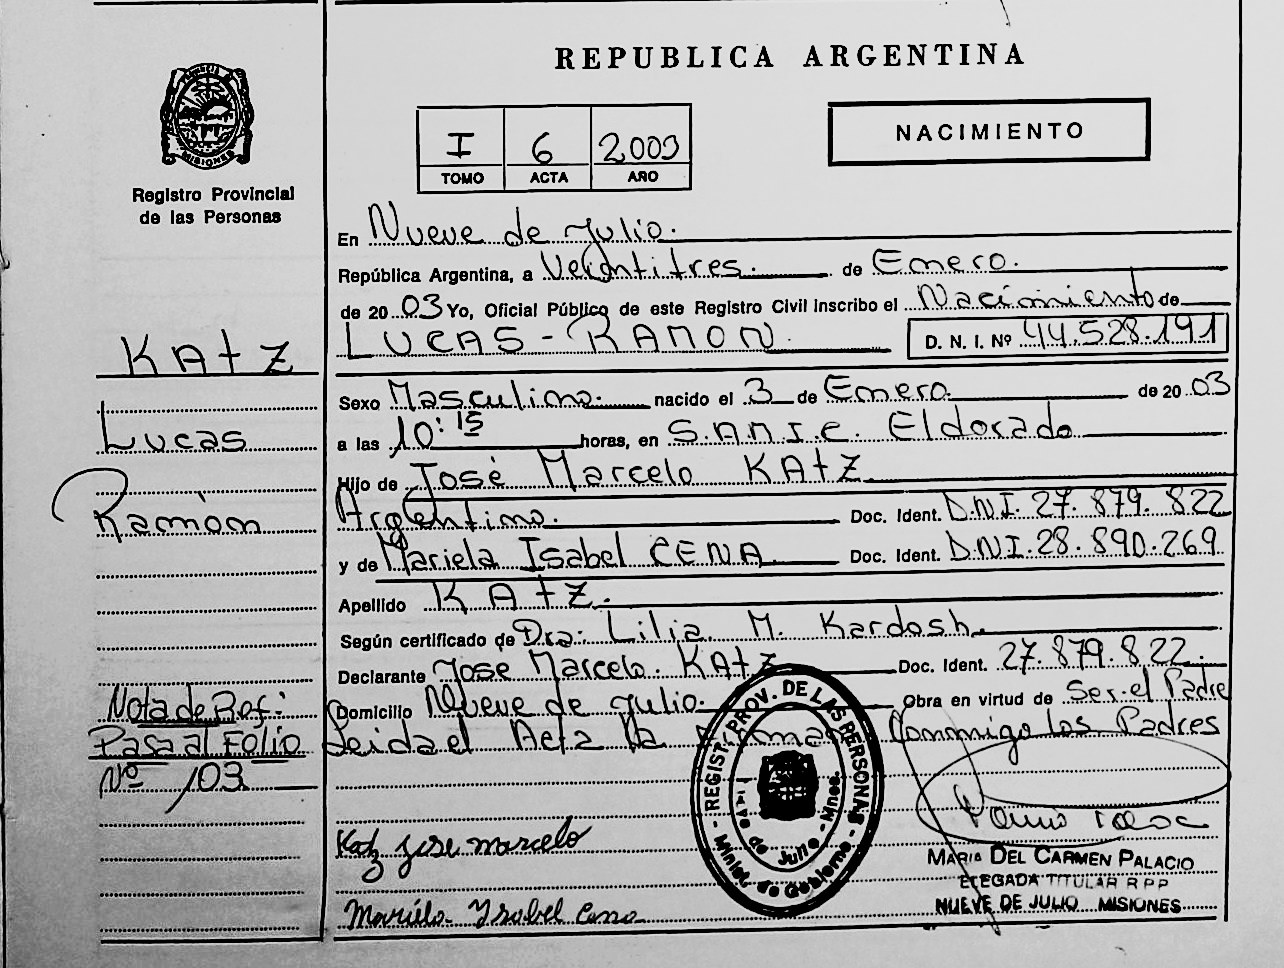 REPUBLICA ARGENTINA
MISIONES
Registro Provincial
de las Personas
I 6 2003
TOMO ACTA AÑO
NACIMIENTO
En Nueve de Julio.
República Argentina, a Veintitres. de Enero.
de 2003 Yo, Oficial Público de este Registro Civil Inscribo el Nacimiento de
LUCAS-RAMON. D. N. I. Nº 44.528.191
KAtZ
Lucas
Ramón
Sexo Masculino. nacido el 3 de Enero de 2003
a las 10:15 horas, en S.A.M.I.C. Eldorado
Hijo de José Marcelo KAtZ
Argentino. Doc. Ident. D.N.I. 27.879.822
y de Mariela Isabel CENA Doc. Ident. D.N.I. 28.890.269
Apellido KAtZ.
Según certificado de Dra: Lilia M. Kardosh.
Declarante Jose Marcelo KAtZ Doc. Ident. 27.879.822
Domicilio Nueve de Julio. Obra en virtud de Ser el Padre
Leida el Acta la Conmigo los Padres
Nota de Ref:
Pasa al Folio
Nº 103
Katz jose marcelo
Mariela Ysabel Cena
REGIST. PROV. DE LAS PERSONAS
de Julio - Mnes.
Minist. de Gobierno
MARIA DEL CARMEN PALACIO
ELEGADA TITULAR R P P
NUEVE DE JULIO MISIONES